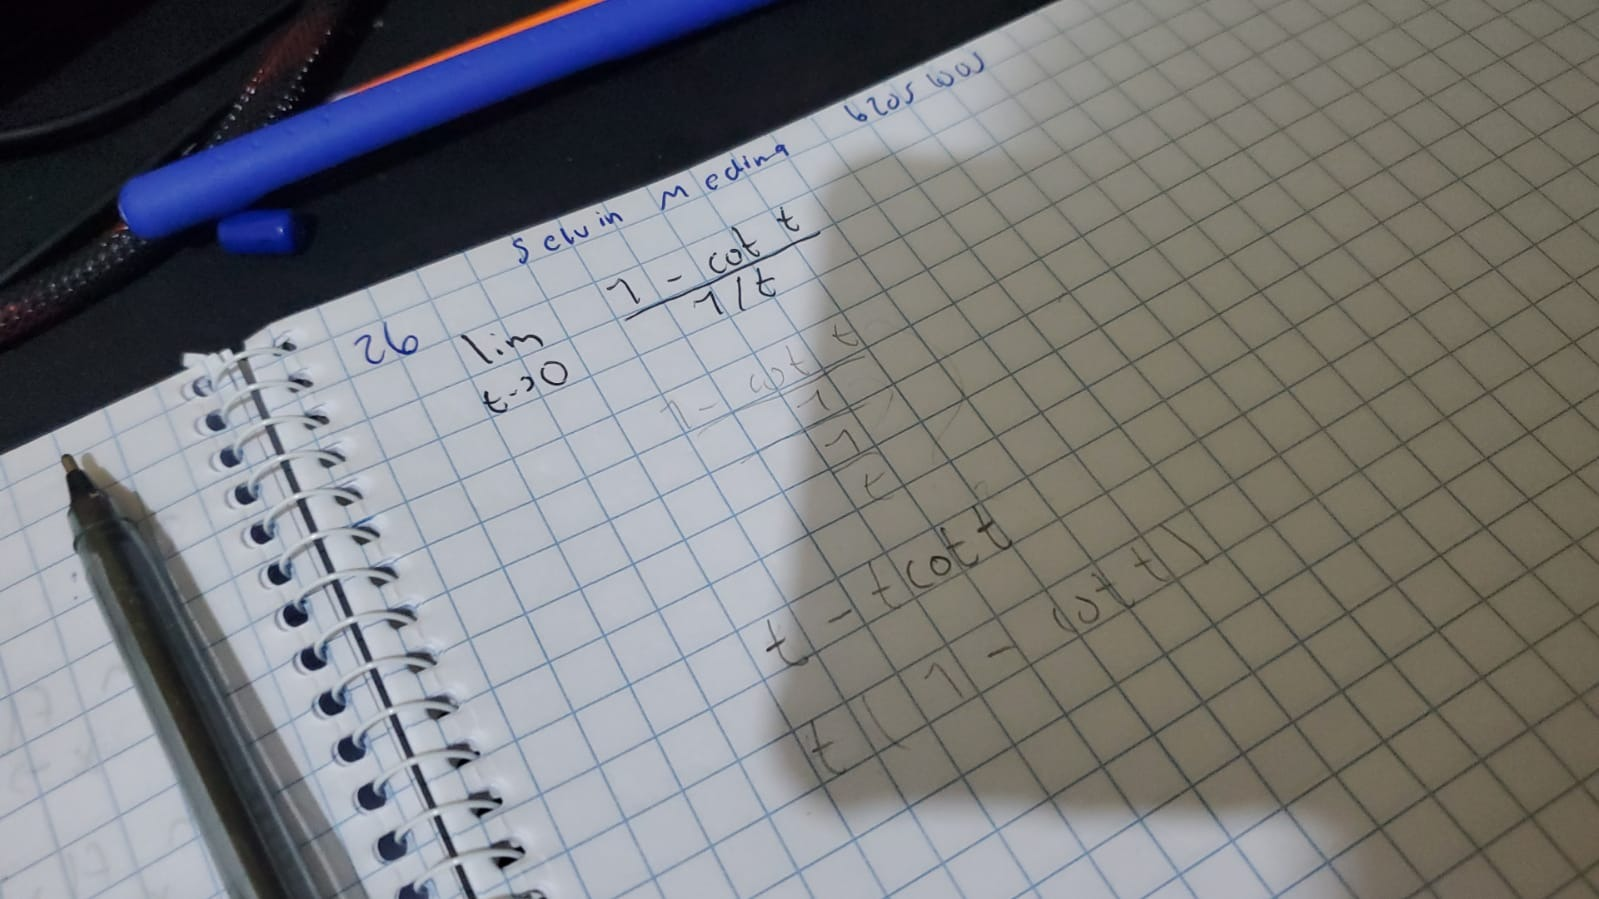 Selvin Medina 6205 WOJ
26 lim 1 - cot t
t->0 1/t
1 - cot t
1
1
t
t - t cot t
t ( 1 - cot t )